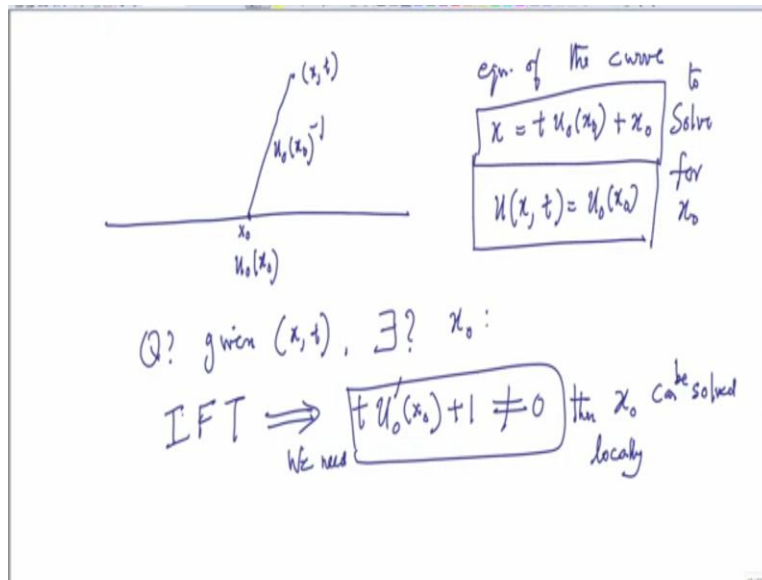 (x, t)
u₀(x₀)⁻¹
x₀
u₀(x₀)
eqn. of the curve
x = t u₀(x₀) + x₀
u(x, t) = u₀(x₀)
to
Solve
for
x₀
Q? given (x, t), ∃? x₀ :
IFT ⟹ t u₀′(x₀) + 1 ≠ 0 then x₀ can be solved
We need
locally